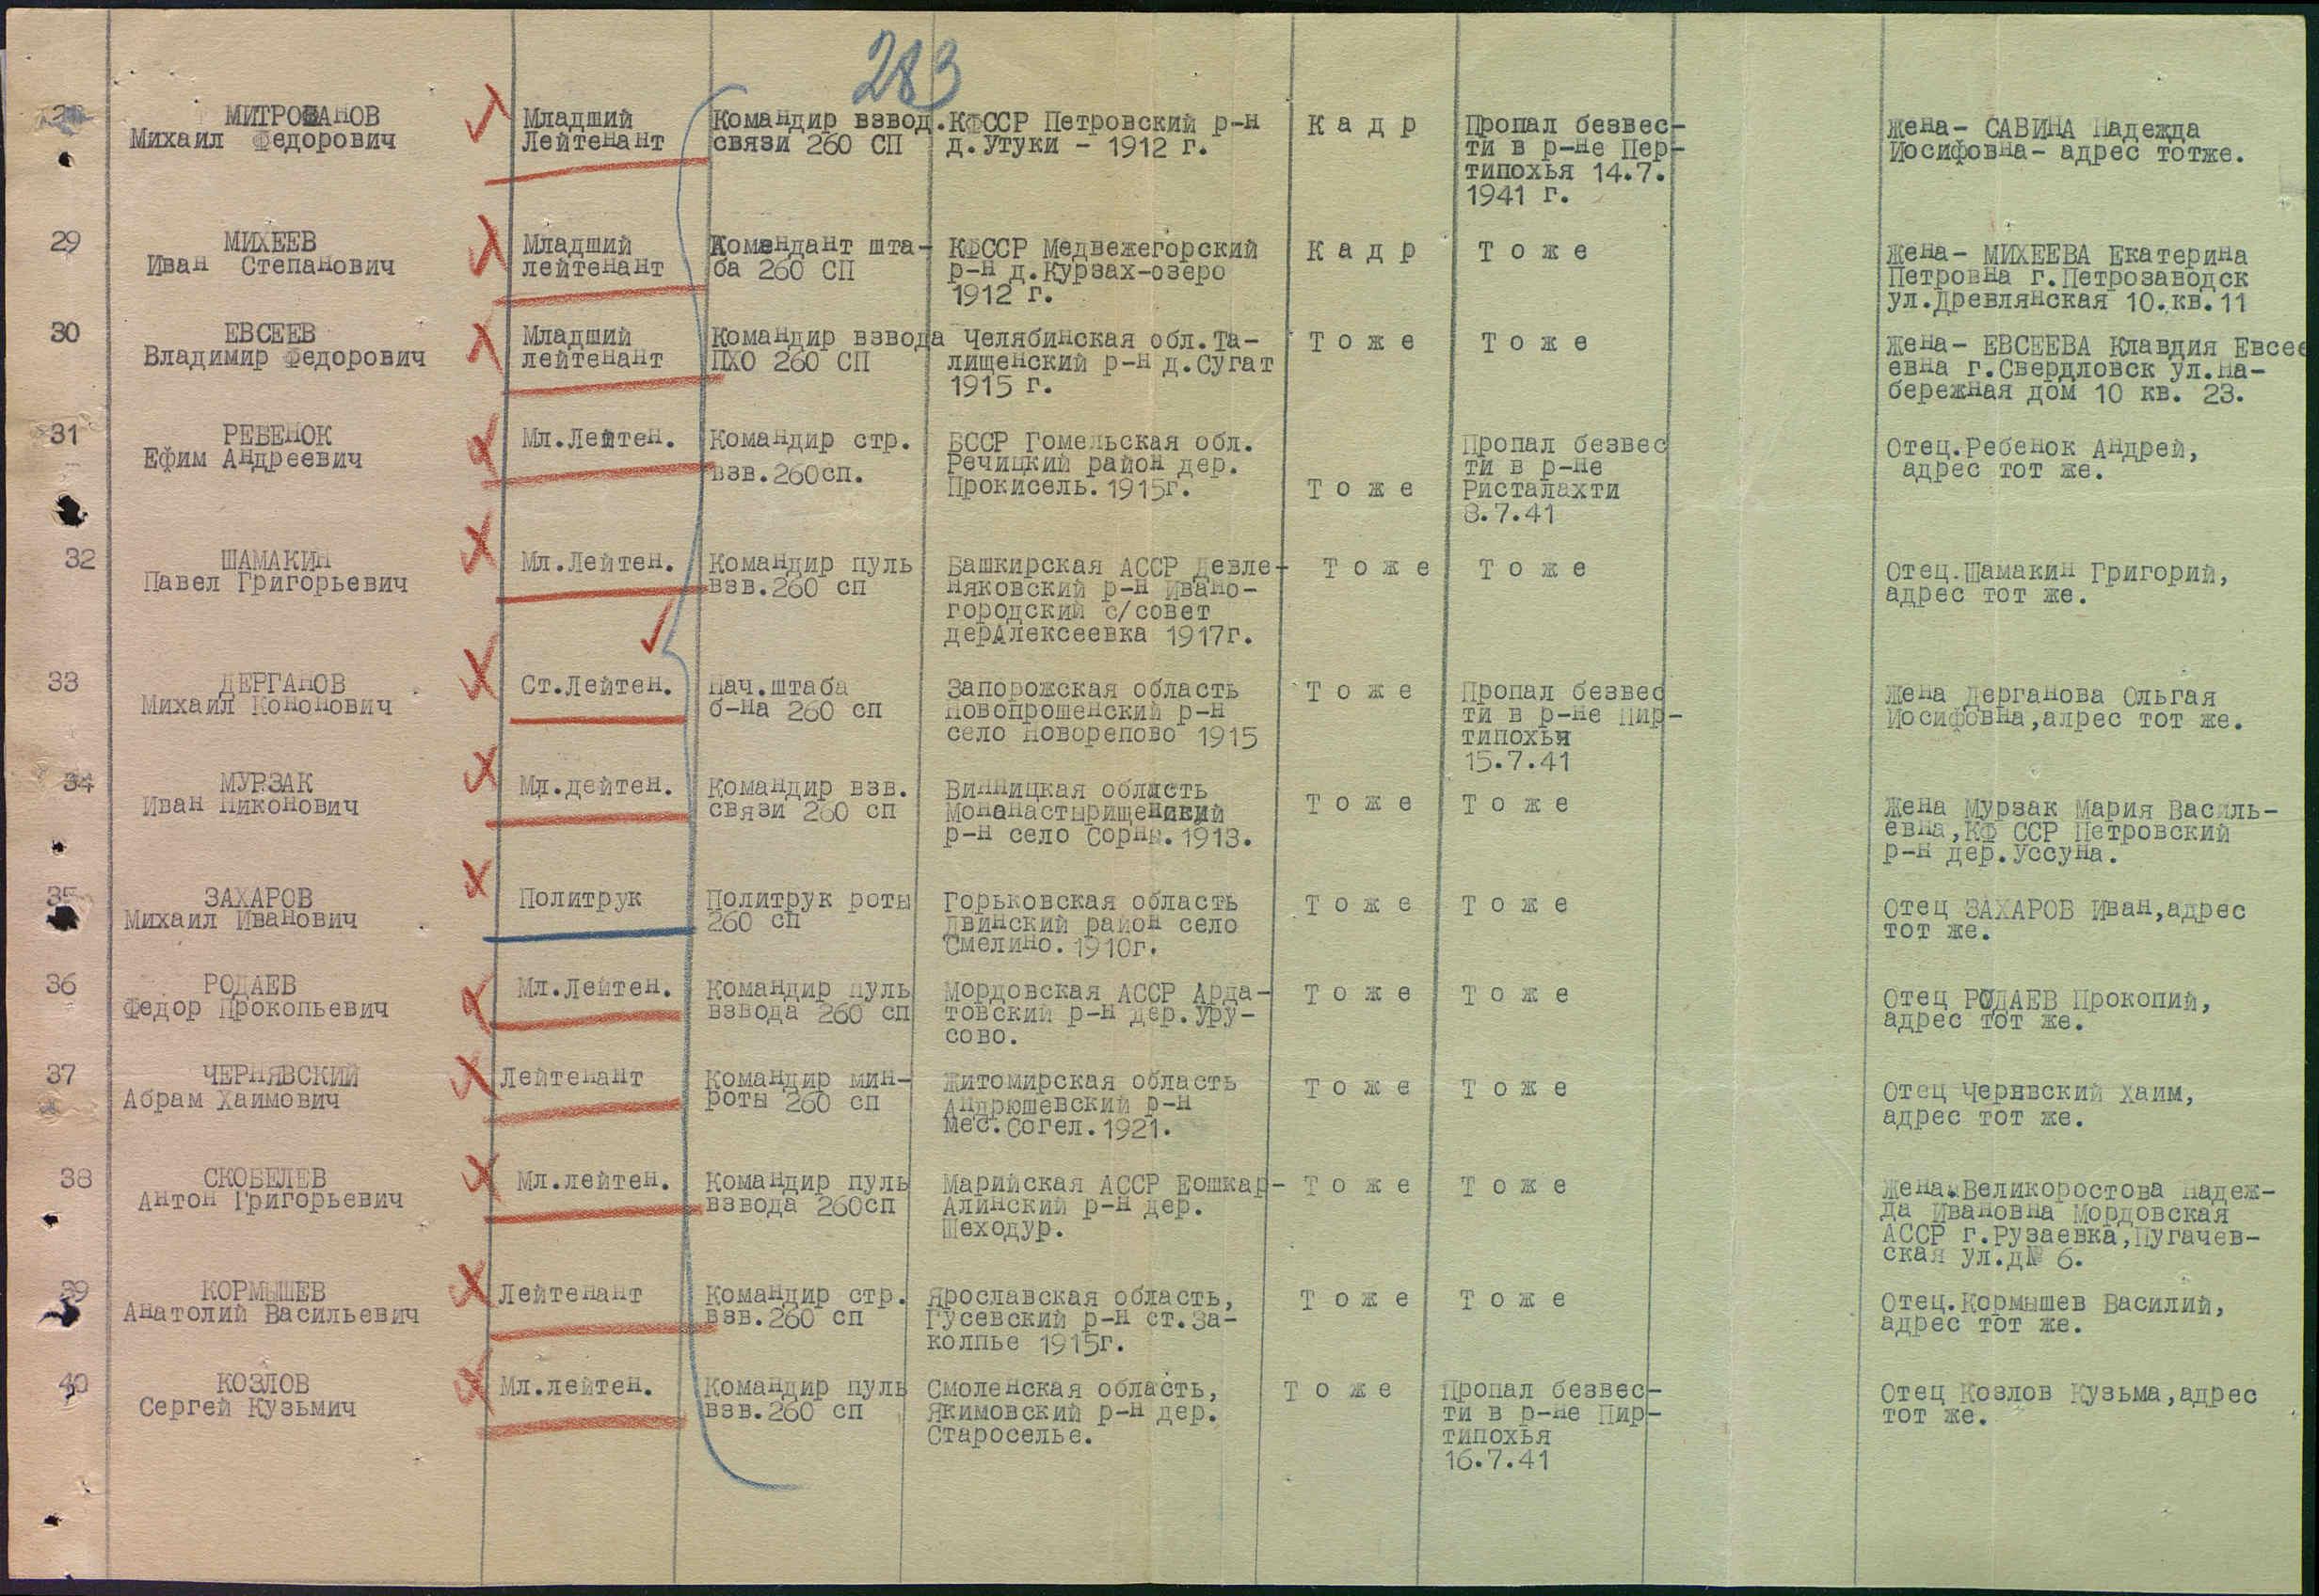 283
28
МИТРОФАНОВ
Михаил Федорович
Младший
Лейтенант
Командир взвод.
связи 260 СП
КФССР Петровский р-н
д.Утуки - 1912 г.
К а д р
Пропал безвес-
ти в р-не Пер-
типохья 14.7.
1941 г.
Жена- САВИНА Надежда
Иосифовна- адрес тотже.
29
МИХЕЕВ
Иван Степанович
Младший
лейтенант
Комендант шта-
ба 260 СП
КФССР Медвежегорский
р-н д.Курзах-озеро
1912 г.
К а д р
Т о ж е
Жена- МИХЕЕВА Екатерина
Петровна г.Петрозаводск
ул.Древлянская 10.кв.11
30
ЕВСЕЕВ
Владимир Федорович
Младший
лейтенант
Командир взвода
ПХО 260 СП
Челябинская обл.Та-
лищенский р-н д.Сугат
1915 г.
Т о ж е
Т о ж е
Жена- ЕВСЕЕВА Клавдия Евсее
евна г.Свердловск ул.На-
бережная дом 10 кв. 23.
31
РЕБЕНОК
Ефим Андреевич
Мл.Лейтен.
Командир стр.
взв.260сп.
БССР Гомельская обл.
Речицкий район дер.
Прокисель.1915г.
Т о ж е
Пропал безвес
ти в р-не
Ристалахти
8.7.41
Отец.Ребенок Андрей,
адрес тот же.
32
ШАМАКИН
Павел Григорьевич
Мл.Лейтен.
Командир пуль
взв.260 сп
Башкирская АССР Девле-
няковский р-н Ивано-
городский с/совет
дерАлексеевка 1917г.
Т о ж е
Т о ж е
Отец.Шамакин Григорий,
адрес тот же.
33
ДЕРГАНОВ
Михаил Кононович
Ст.Лейтен.
Нач.штаба
б-на 260 сп
Запорожская область
Новопрошенский р-н
село Новорепово 1915
Т о ж е
Пропал безвес
ти в р-не Пир-
типохья
15.7.41
Жена Дерганова Ольгая
Иосифовна,алрес тот же.
34
МУРЗАК
Иван Никонович
Мл.дейтен.
Командир взв.
связи 260 сп
Винницкая область
Монанастырищенский
р-н село Сорны.1913.
Т о ж е
Т о ж е
Жена Мурзак Мария Василь-
евна,КФ ССР Петровский
р-н дер.Уссуна.
35
ЗАХАРОВ
Михаил Иванович
Политрук
Политрук роты
260 сп
Горьковская область
Двинский район село
Смелино.1910г.
Т о ж е
Т о ж е
Отец ЗАХАРОВ Иван,адрес
тот же.
36
РОДАЕВ
Федор Прокопьевич
Мл.Лейтен.
Командир пуль
взвода 260 сп
Мордовская АССР Арда-
товский р-н дер.Уру-
сово.
Т о ж е
Т о ж е
Отец РОДАЕВ Прокопий,
адрес тот же.
37
ЧЕРНЯВСКИЙ
Абрам Хаимович
Лейтенант
Командир мин-
роты 260 сп
Житомирская область
Андрюшевский р-н
мес.Согел.1921.
Т о ж е
Т о ж е
Отец Чернвский Хаим,
адрес тот же.
38
СКОБЕЛЕВ
Антон Григорьевич
Мл.лейтен.
Командир пуль
взвода 260сп
Марийская АССР Еошкар-
Алинский р-н дер.
Шеходур.
Т о ж е
Т о ж е
Жена.Великоростова Надеж-
да Ивановна Мордовская
АССР г.Рузаевка,Пугачев-
ская ул.д№ 6.
39
КОРМЫШЕВ
Анатолий Васильевич
Лейтенант
Командир стр.
взв.260 сп
Ярославская область,
Гусевский р-н ст.За-
колпье 1915г.
Т о ж е
Т о ж е
Отец.Кормышев Василий,
адрес тот же.
40
КОЗЛОВ
Сергей Кузьмич
Мл.лейтен.
Командир пуль
взв.260 сп
Смоленская область,
Якимовский р-н дер.
Староселье.
Т о ж е
Пропал безвес-
ти в р-не Пир-
типохья
16.7.41
Отец Козлов Кузьма,адрес
тот же.